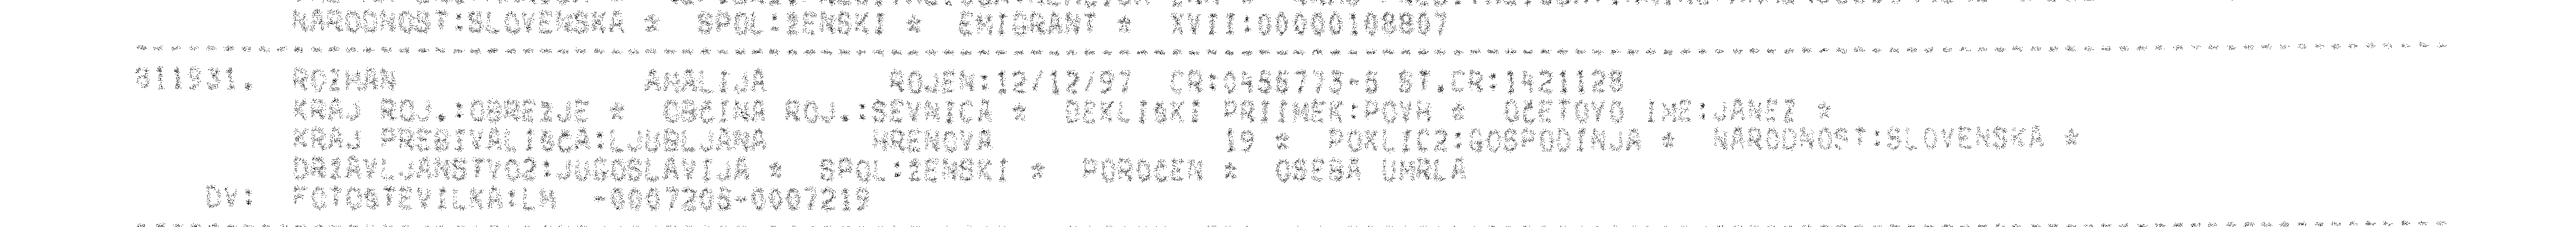 NARODNOST:SLOVENSKA * SPOL:ŽENSKI * EMIGRANT * XVII:00000108807
811931. ROZMAN AMALIJA ROJEN:12/12/97 CR:0455773-5 ST.CR:1421128
KRAJ ROJ.:OBREŽJE * OBČINA ROJ.:SEVNICA * DEKLIŠKI PRIIMEK:POVH * OČETOVO IME:JANEZ *
KRAJ PREBIVALIŠČA:LJUBLJANA HRENOVA 19 * POKLIC2:GOSPODINJA * NARODNOST:SLOVENSKA *
DRŽAVLJANSTVO2:JUGOSLAVIJA * SPOL:ŽENSKI * POROČEN * OSEBA UMRLA
DV: FOTOŠTEVILKA:LM -0007205-0007219